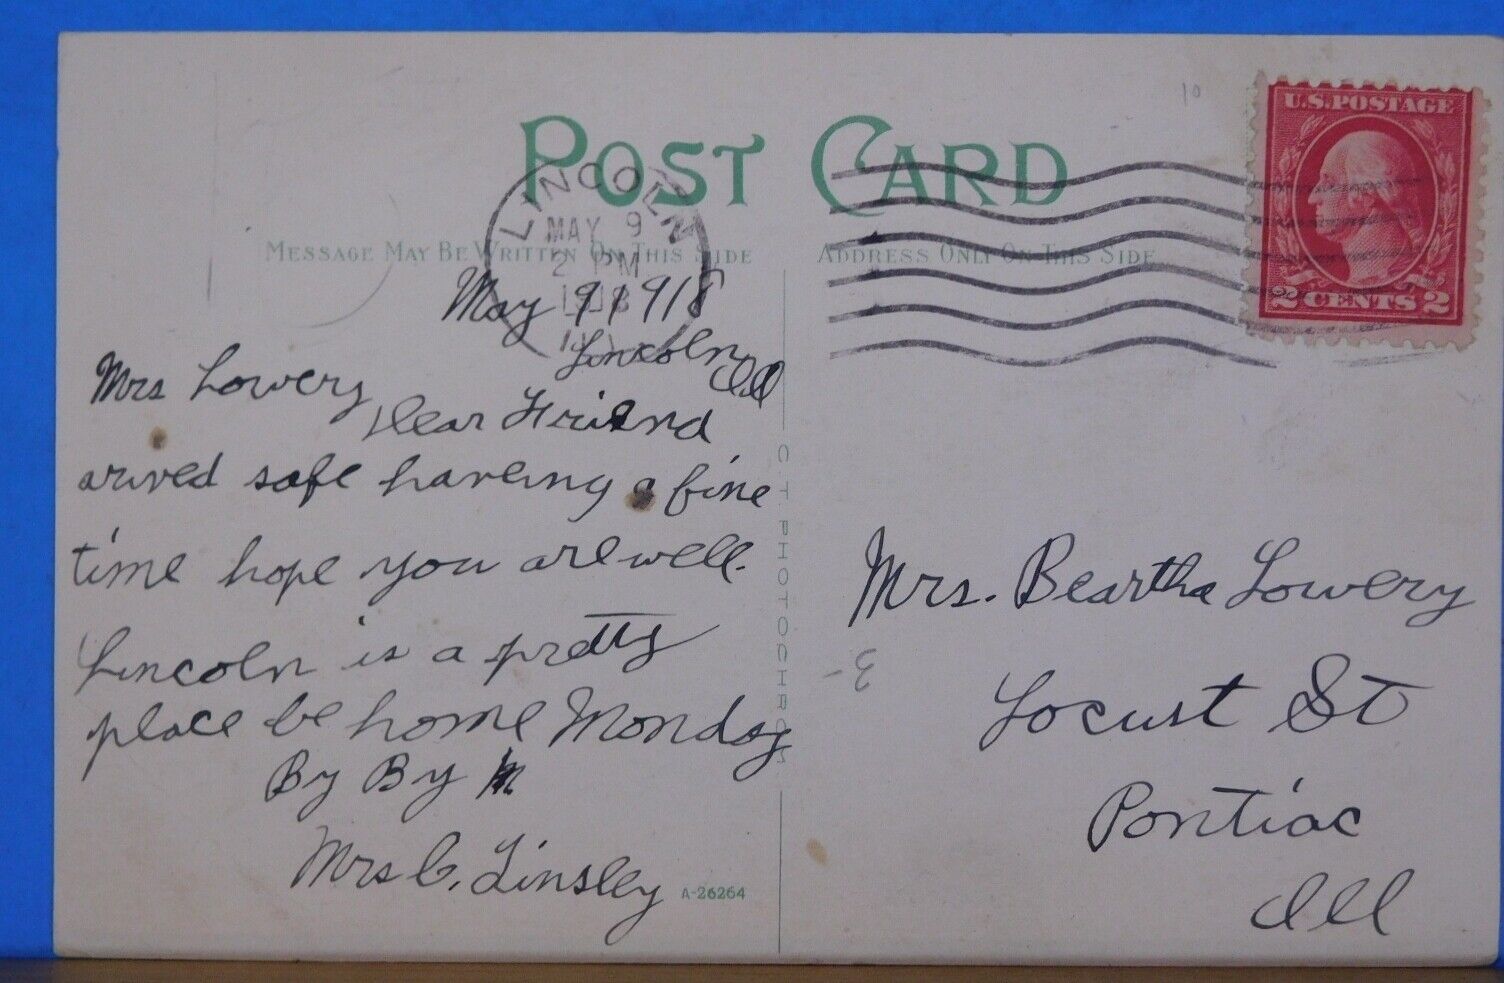 POST CARD
MESSAGE MAY BE WRITTEN ON THIS SIDE
ADDRESS ONLY ON THIS SIDE
LINCOLN
MAY 9
2 PM
U.S. POSTAGE
2 CENTS 2
10
May 9 1918
Lincoln Ill
Mrs Lowery
Dear Friend
arived safe haveing a fine
time hope you are well.
Lincoln is a pretty
place be home Monday
By By
Mrs C. Linsley
A-26264
C. T. PHOTOCHROM
Mrs. Beartha Lowery
Locust St
Pontiac
Ill